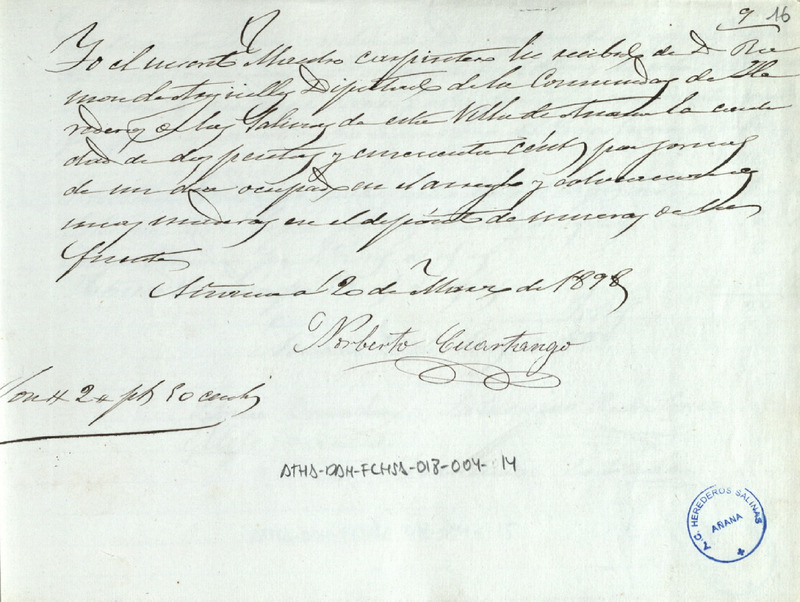 9 16
Yo el infrascrito Maestro carpintero he recibido de D Ra
mon de Diputado de la Comunidad de He
rederos de las Salinas de esta Villa de Añana la canti
dad de dos pesetas y cincuenta cénts por jornal
de un dia ocupado en el arreglo y colocacion de
unas maderas en el depósito de mueras de la
fuente
Añana á 20 de Marzo de 1898
Norberto Cuartango
Son # 2 # pts 50 cents
ATHA-DAH-FCHSA-013-004-14
A. G. HEREDEROS SALINAS
AÑANA